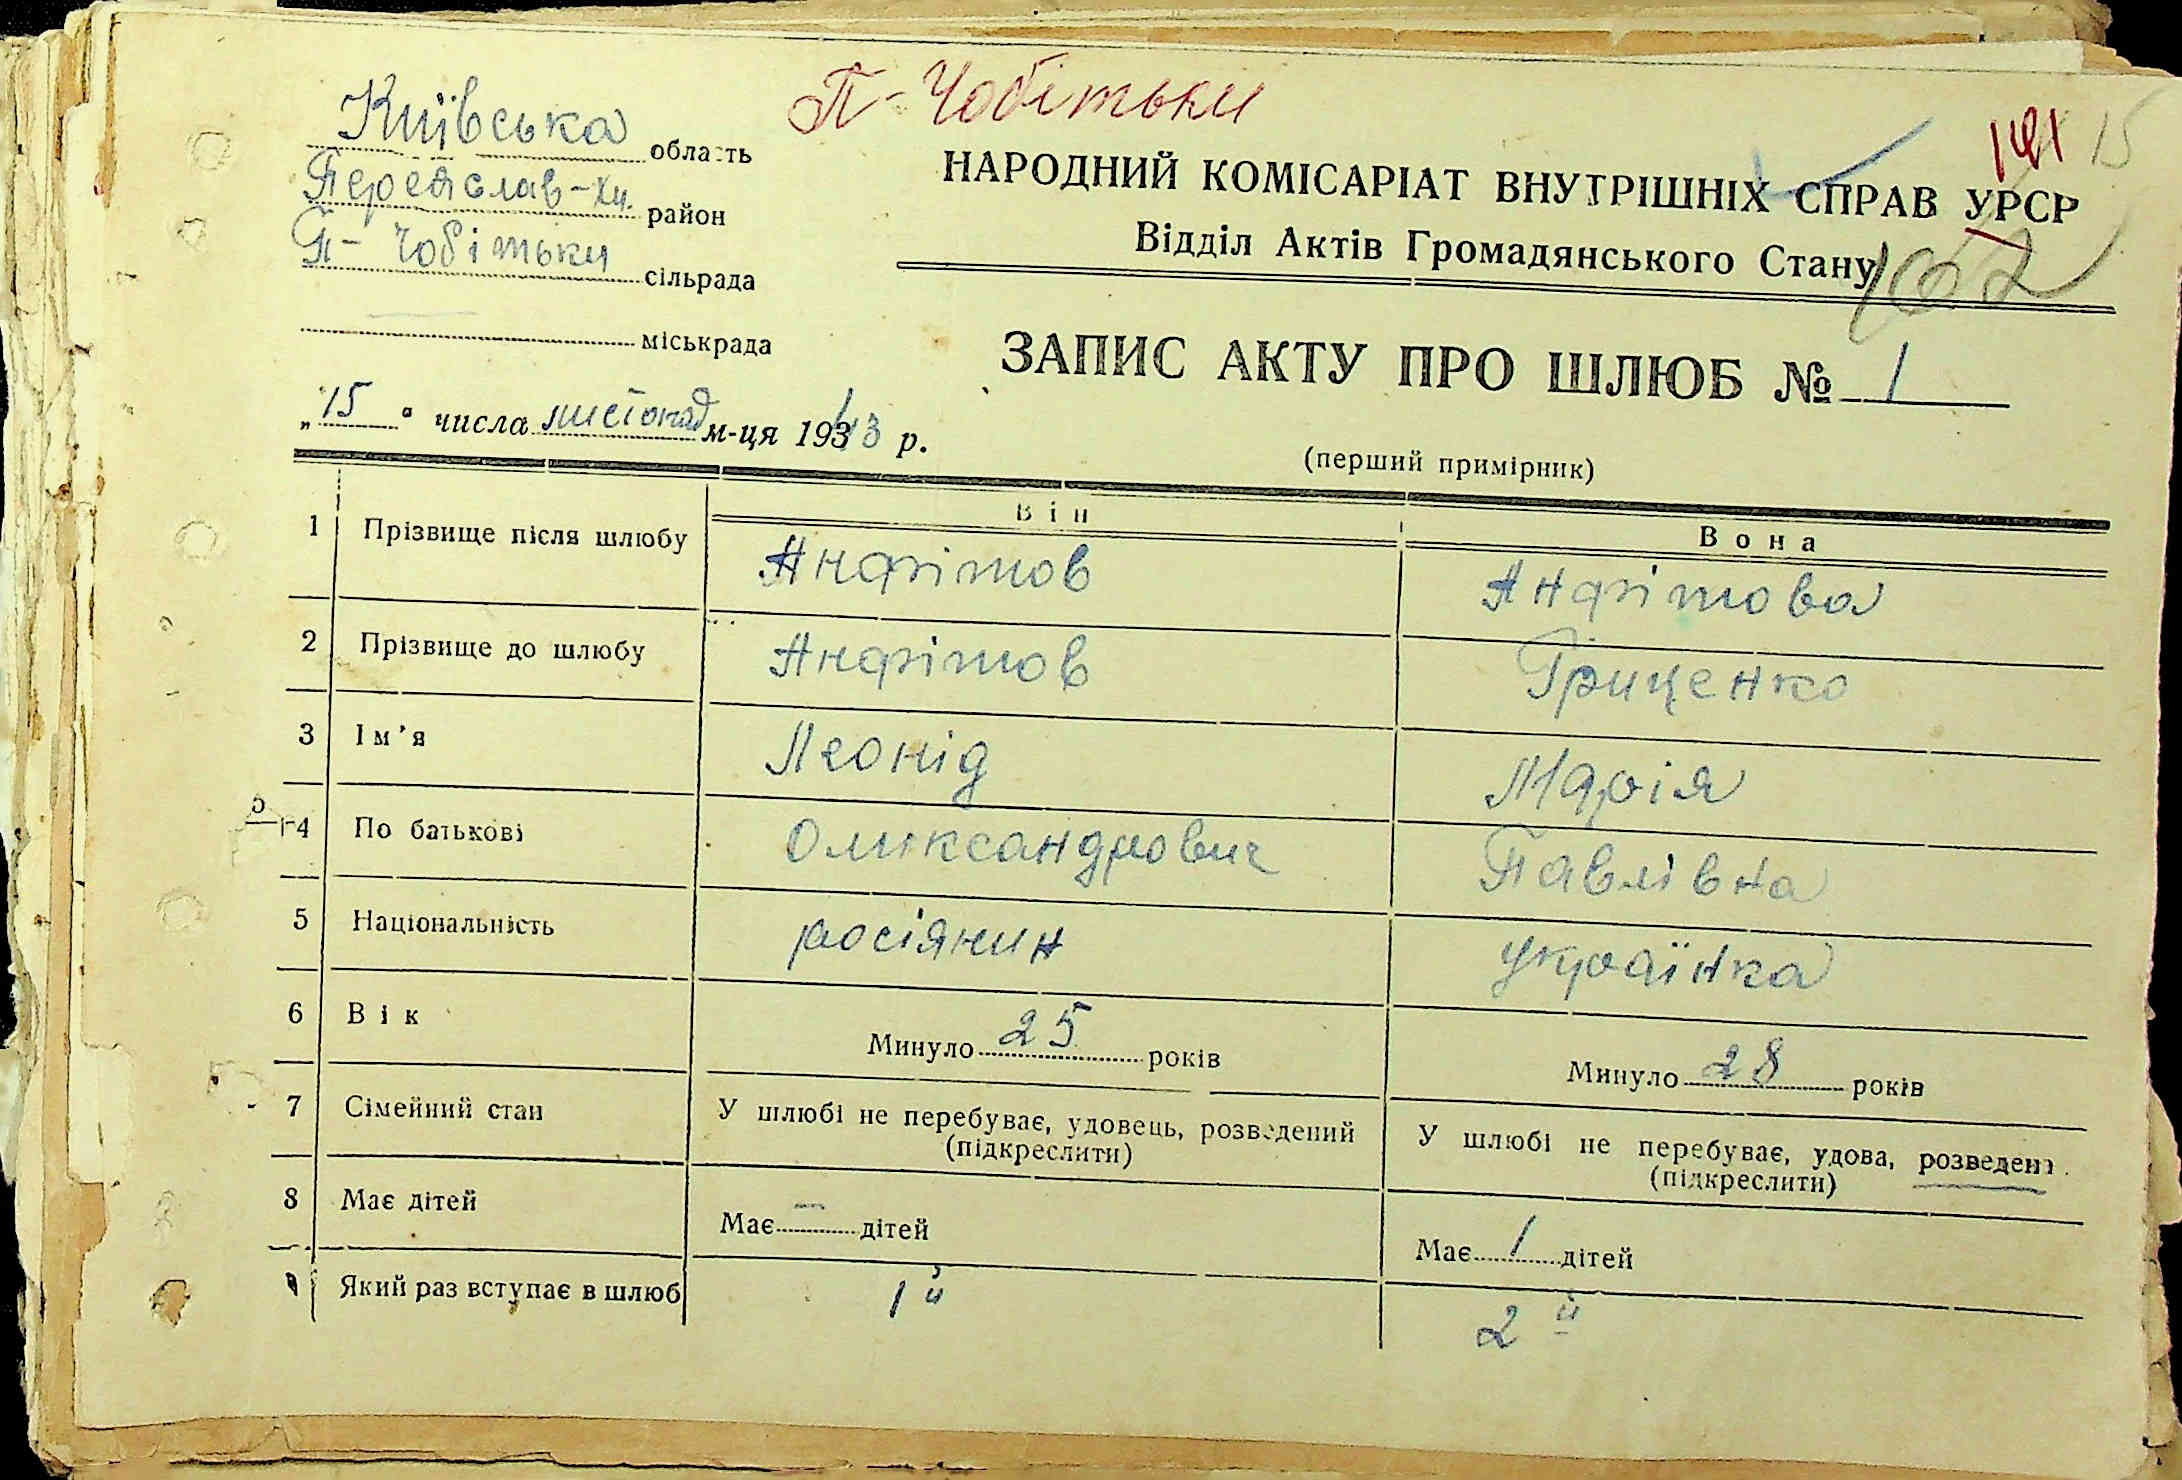 П-Чобітьки
Київська область
Переяслав-Хм. район
П-Чобітьки сільрада
міськрада
191 15
НАРОДНИЙ КОМІСАРІАТ ВНУТРІШНІХ СПРАВ УРСР
Відділ Актів Громадянського Стану
162
ЗАПИС АКТУ ПРО ШЛЮБ № 1
„15“ числа листопад м-ця 1943 р.
(перший примірник)
Він Вона
1 Прізвище після шлюбу Анфімов Анфімова
2 Прізвище до шлюбу Анфімов Гриценко
3 Ім’я Леонід Марія
4 По батькові Олександрович Павлівна
5 Національність росіянин українка
6 Вік Минуло 25 років Минуло 28 років
7 Сімейний стан У шлюбі не перебуває, удовець, розведений У шлюбі не перебуває, удова, розведена
(підкреслити) (підкреслити)
8 Має дітей Має — дітей Має 1 дітей
Який раз вступає в шлюб 1й 2й